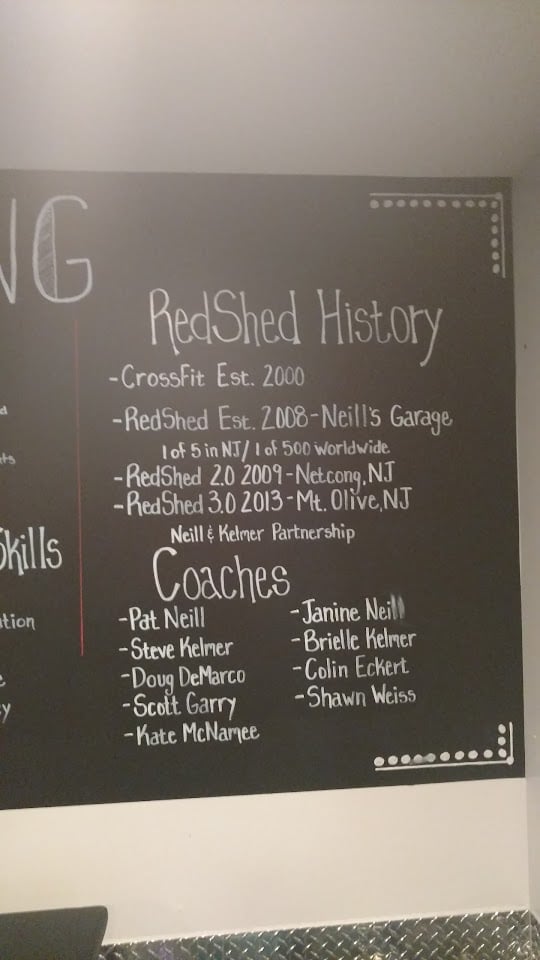 NG
RedShed History
-CrossFit Est. 2000
-RedShed Est. 2008-Neill's Garage
1 of 5 in NJ/1 of 500 worldwide
-RedShed 2.0 2009-Netcong, NJ
-RedShed 3.0 2013-Mt. Olive, NJ
Neill & Kelmer Partnership
Skills
Coaches
-Pat Neill
-Steve Kelmer
-Doug DeMarco
-Scott Garry
-Kate McNamee
-Janine Neill
-Brielle Kelmer
-Colin Eckert
-Shawn Weiss